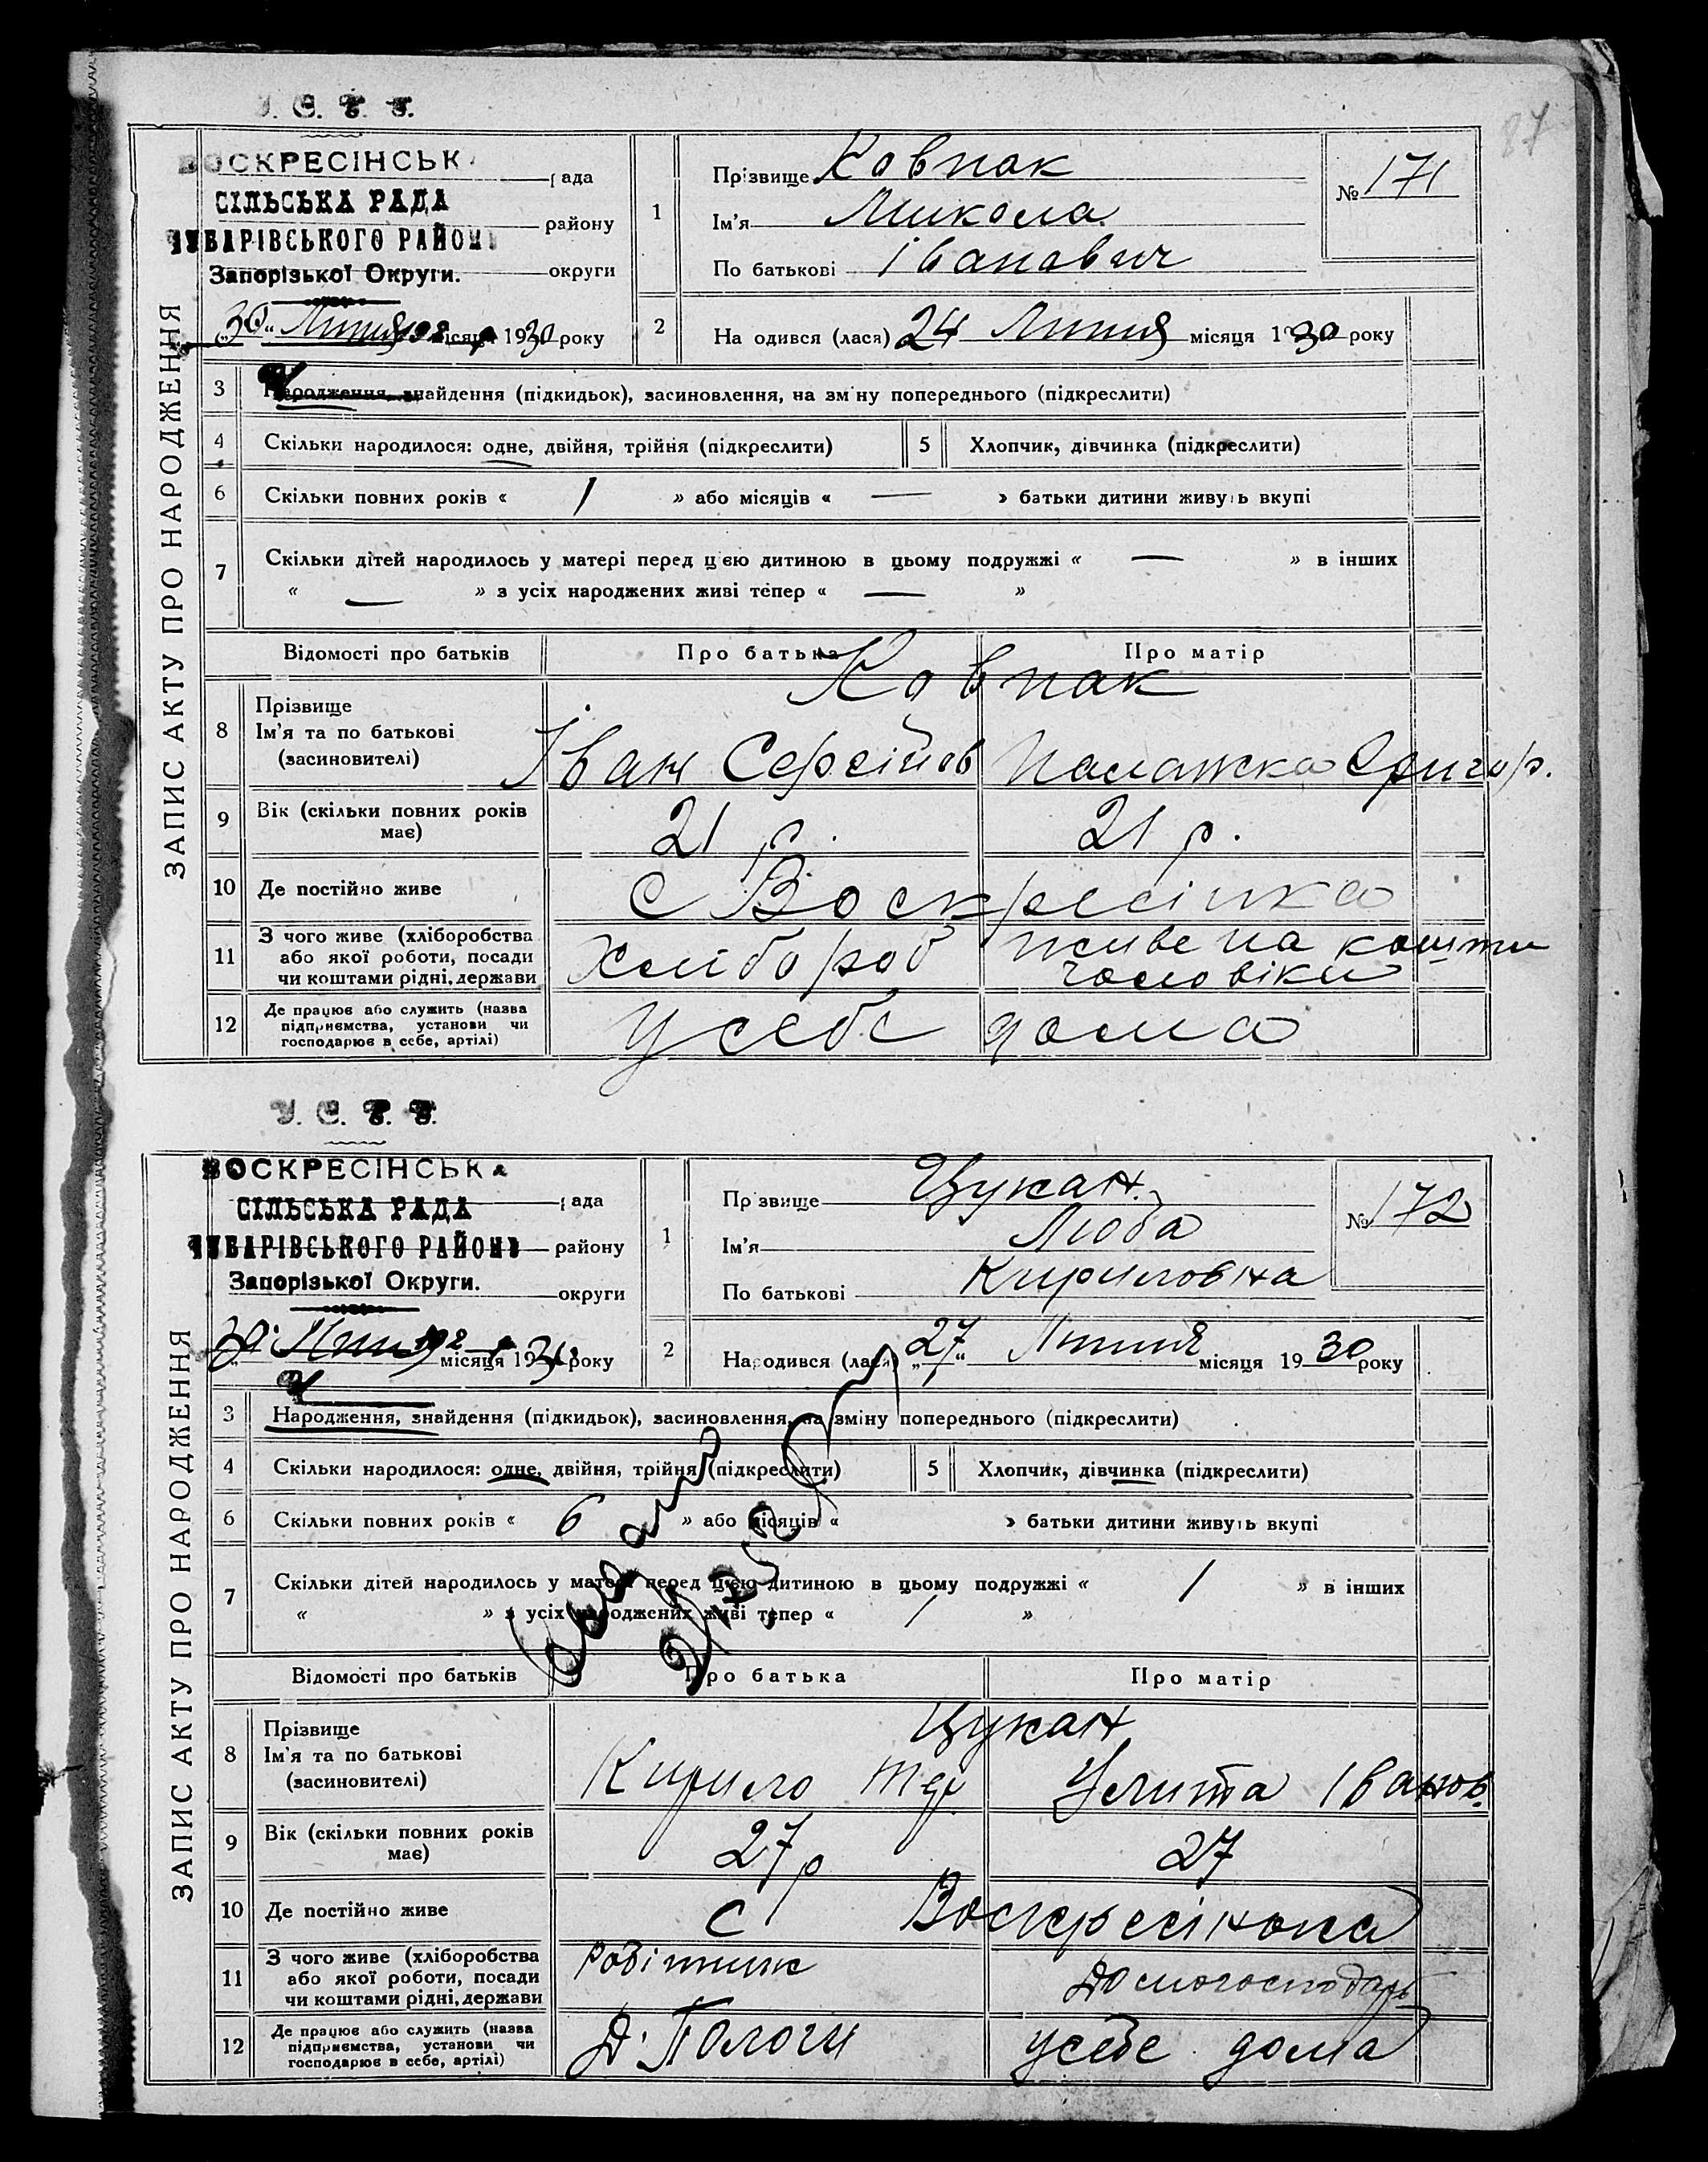 87
У. С. Р. Р.
ВОСКРЕСІНСЬКА рада
СІЛЬСЬКА РАДА
ЧУБАРІВСЬКОГО РАЙОНУ району
Запорізької Округи. округи
„30“ Липня місяця 1930 року
ЗАПИС АКТУ ПРО НАРОДЖЕННЯ
1 Прізвище Ковпак
Ім'я Микола
По батькові Іванович
№ 171
2 Народився (лася) 24 Липня місяця 1930 року
3 Народження, знайдення (підкидьок), засиновлення, на зміну попереднього (підкреслити)
4 Скільки народилося: одне, двійня, трійня (підкреслити) 5 Хлопчик, дівчинка (підкреслити)
6 Скільки повних років « 1 » або місяців « — » батьки дитини живуть вкупі
7 Скільки дітей народилось у матері перед цією дитиною в цьому подружжі « — » в інших
« — » з усіх народжених живі тепер « — »
Відомості про батьків Про батька Про матір
8 Прізвище Ковпак
Ім'я та по батькові Іван Сергіїов Палажка Григор.
(засиновителі)
9 Вік (скільки повних років має) 21 р. 21 р.
10 Де постійно живе с Воскресінка
11 З чого живе (хліборобства
або якої роботи, посади
чи коштами рідні, держави
Хлібороб живе на кошти
чоловіка
12 Де працює або служить (назва
підприємства, установи чи
господарює в себе, артілі)
У себе дома
У. С. Р. Р.
ВОСКРЕСІНСЬКА рада
СІЛЬСЬКА РАДА
ЧУБАРІВСЬКОГО РАЙОНУ району
Запорізької Округи. округи
„30“ Липня місяця 1930 року
ЗАПИС АКТУ ПРО НАРОДЖЕННЯ
1 Прізвище Цукан
Ім'я Люба
По батькові Кириловна
№ 172
2 Народився (лася) „27“ Липня місяця 1930 року
3 Народження, знайдення (підкидьок), засиновлення, на зміну попереднього (підкреслити)
4 Скільки народилося: одне, двійня, трійня (підкреслити) 5 Хлопчик, дівчинка (підкреслити)
6 Скільки повних років « 6 » або місяців « » батьки дитини живуть вкупі
7 Скільки дітей народилось у матері перед цією дитиною в цьому подружжі « 1 » в інших
« » з усіх народжених живі тепер « 1 »
Відомості про батьків Про батька Про матір
8 Прізвище Цукан
Ім'я та по батькові Кирило Улита Іванов.
(засиновителі)
9 Вік (скільки повних років має) 27 р 27
10 Де постійно живе с Воскресінока
11 З чого живе (хліборобства
або якої роботи, посади
чи коштами рідні, держави
Робітник Домогосподарь
12 Де працює або служить (назва
підприємства, установи чи
господарює в себе, артілі)
Д. Пологи у себе дома